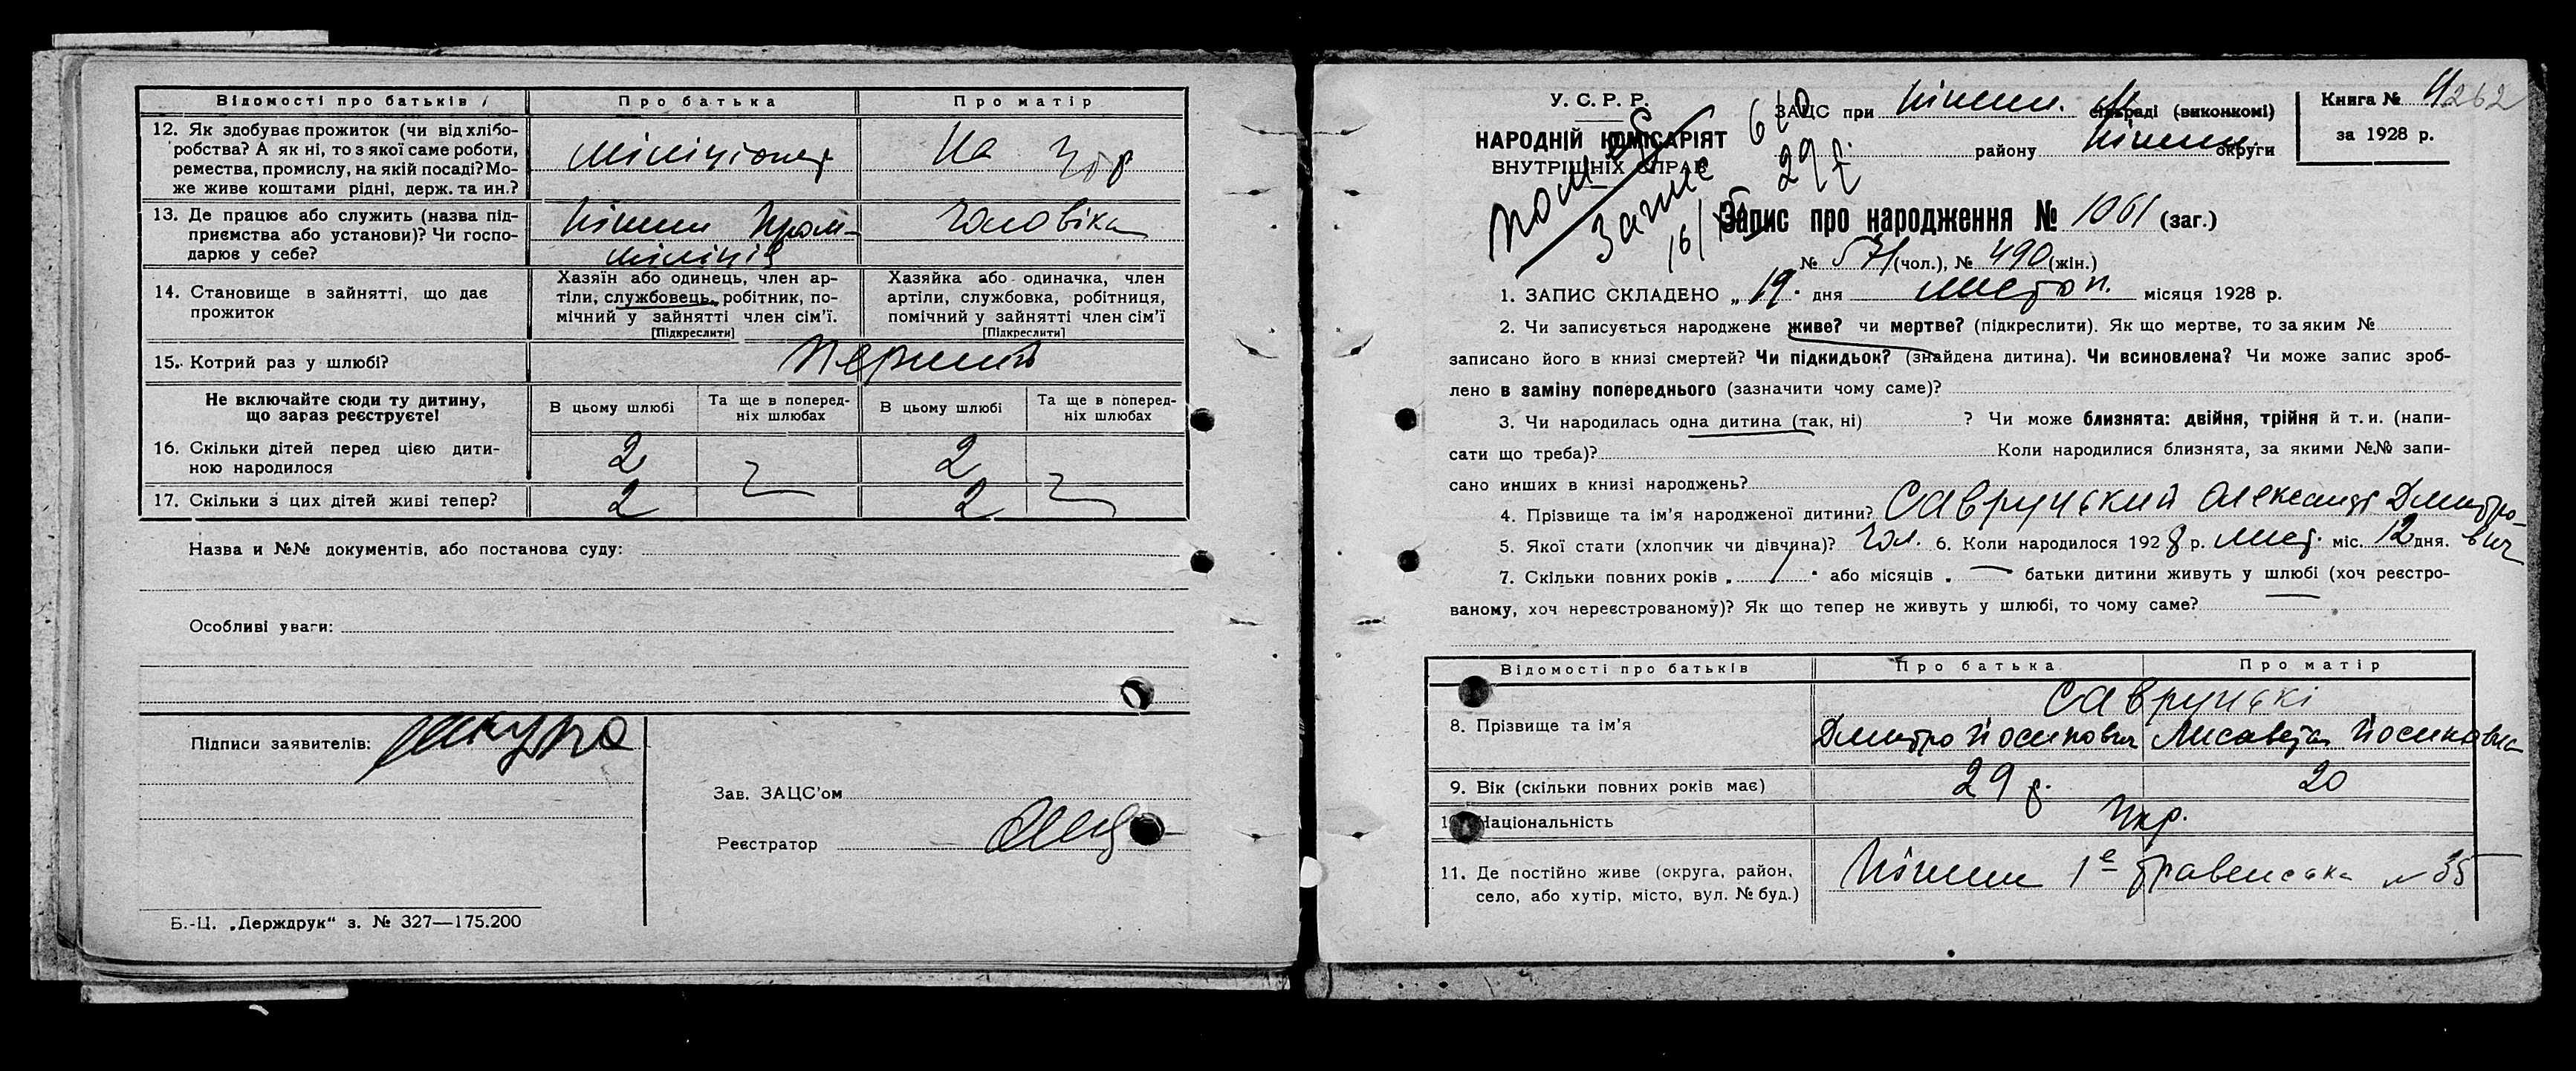 Відомості про батьків
Про батька
Про матір
12. Як здобуває прожиток (чи від хлібо-
робства? А як ні, то з якої саме роботи,
ремества, промислу, на якій посаді? Мо-
же живе коштами рідні, держ. та ин.?
міліціонер
На
13. Де працює або служить (назва під-
приємства або установи)? Чи госпо-
дарює у себе?
Ніжин Пром-
міліція
Чоловіка
14. Становище в зайнятті, що дає
прожиток
Хазяїн або одинець, член ар-
тіли, службовець, робітник, по-
мічний у зайнятті член сім'ї.
[Підкреслити]
Хазяйка або одиначка, член
артіли, службовка, робітниця,
помічний у зайнятті член сім'ї
[Підкреслити]
15. Котрий раз у шлюбі?
Перший
Не включайте сюди ту дитину,
що зараз реєструєте!
В цьому шлюбі
Та ще в поперед-
ніх шлюбах
В цьому шлюбі
Та ще в поперед-
ніх шлюбах
16. Скільки дітей перед цією дити-
ною народилося
2
2
17. Скільки з цих дітей живі тепер?
2
2
Назва и №№ документів, або постанова суду:
Особливі уваги:
Підписи заявителів:
Зав. ЗАЦС'ом
Реєстратор
Б.-Ц. „Держдрук" з. № 327—175.200
У. С. Р. Р.
НАРОДНІЙ КОМІСАРІЯТ
ВНУТРІШНІХ СПРАВ
ЗАЦС при Ніжин. сільраді (виконкомі)
району Ніжин. округи
Книга № 4 262
за 1928 р.
29 р.
Запис про народження № 1061 (заг.)
№ 571 (чол.), № 490 (жін.)
1. ЗАПИС СКЛАДЕНО „19. дня листоп. місяця 1928 р.
2. Чи записується народжене живе? чи мертве? (підкреслити). Як що мертве, то за яким №
записано його в книзі смертей? Чи підкидьок? (знайдена дитина). Чи всиновлена? Чи може запис зроб-
лено в заміну попереднього (зазначити чому саме)?
3. Чи народилась одна дитина (так, ні) ? Чи може близнята: двійня, трійня й т. и. (напи-
сати що треба)? Коли народилися близнята, за якими №№ запи-
сано инших в книзі народжень?
4. Прізвище та ім'я народженої дитини? Савруцький Олександр Дмитро-
вич
5. Якої стати (хлопчик чи дівчина)? Чол. 6. Коли народилося 1928 р. лист. міс. 12 дня.
7. Скільки повних років „ " або місяців „ — " батьки дитини живуть у шлюбі (хоч реєстро-
ваному, хоч нереєстрованому)? Як що тепер не живуть у шлюбі, то чому саме?
Відомості про батьків
Про батька
Про матір
8. Прізвище та ім'я
Савруцькі
Дмитро Йосипович
Лисавета Йосиповна
9. Вік (скільки повних років має)
29 р.
20
10. Національність
Укр.
11. Де постійно живе (округа, район,
село, або хутір, місто, вул. № буд.)
Ніжин 1е травенська № 35